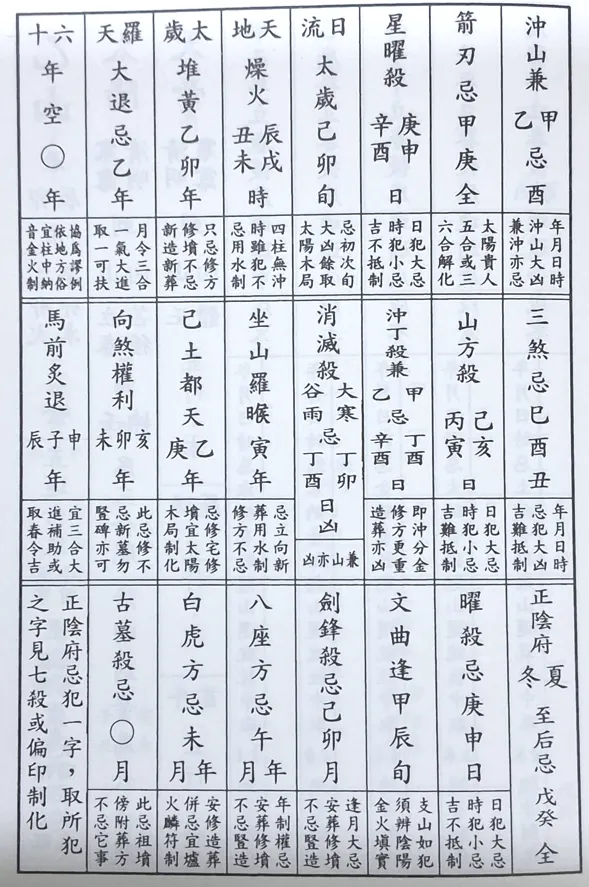 沖山兼甲乙忌酉
年月日時
沖山大凶
兼沖亦忌
箭刃忌甲庚全
太陽貴人
五合或三
六合解化
星曜殺庚申辛酉日
日犯大忌
時犯小忌
吉不抵制
日流太歲己卯旬
忌初次旬
大凶餘取
太陽木局
天地燥火辰戌丑未時
四柱無沖
時雖犯不
忌用水制
太歲堆黃乙卯年
只忌修方
修墳不忌
新造新葬
羅天大退忌乙年
月令三合
一氣大進
取一可扶
六十年空〇年
協為謬例
依地方俗
宜柱中納
音金火制
三煞忌巳酉丑
年月日時
忌犯大凶
吉難抵制
山方殺己亥丙寅日
日犯大忌
時犯小忌
吉難抵制
沖丁殺兼甲乙忌丁酉辛酉日
即沖分金
修方更重
造葬亦凶
消滅殺大寒穀雨忌丁卯丁酉日凶
兼山亦凶
坐山羅睺寅年
忌立向新
葬用水制
修方不忌
己土都天乙庚年
忌修宅修
墳宜太陽
木局制化
向煞權利亥卯未年
此忌修不
忌新墓勿
豎碑亦可
馬前炙退申子辰年
宜三合大
進補助或
取春令吉
正陰府夏冬至后忌戊癸全
曜殺忌庚申日
日犯大忌
時犯小忌
吉不抵制
文曲逢甲辰旬
支山如犯
須辨陰陽
金火填實
劍鋒殺忌己卯月
逢月大忌
安葬修墳
不忌豎造
八座方忌午年月
年制權忌
安葬修墳
不忌豎造
白虎方忌未年月
安修造葬
併忌宜爐
火麟符制
古墓殺忌〇月
此忌祖墳
傍附葬方
不忌它事
正陰府忌犯一字，取所犯
之字見七殺或偏印制化